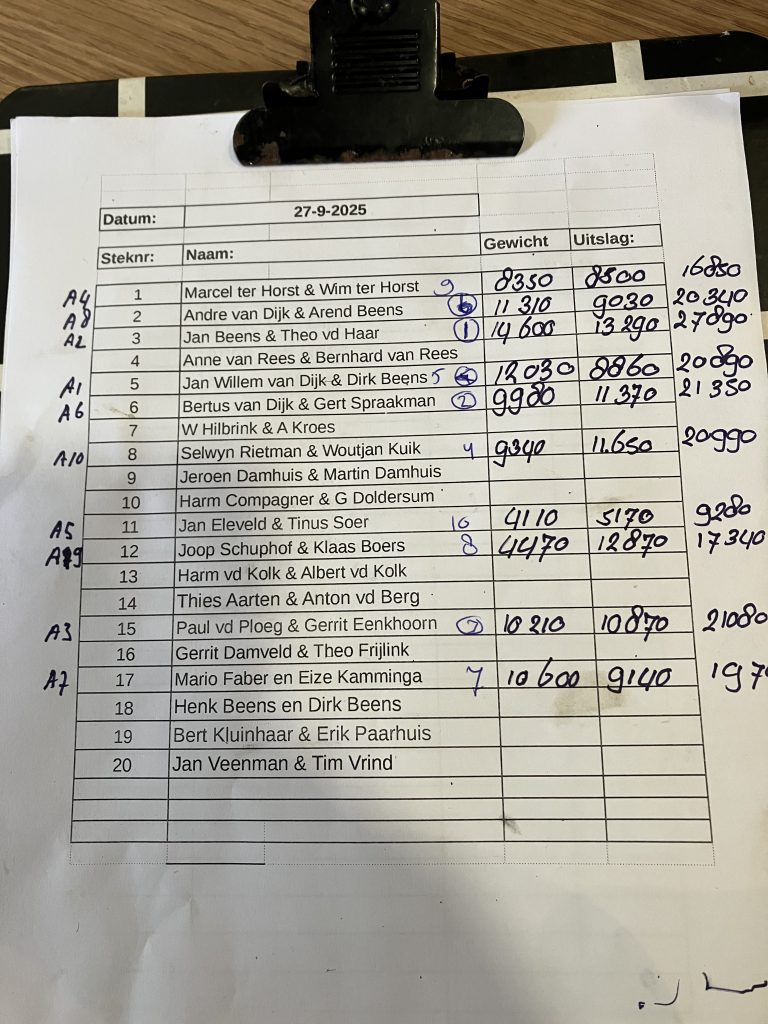 Datum: 27-9-2025
Steknr: Naam: Gewicht Uitslag:
A4 1 Marcel ter Horst & Wim ter Horst 9 8350 8500 16850
A8 2 Andre van Dijk & Arend Beens 6 11 310 9030 20340
A2 3 Jan Beens & Theo vd Haar 1 14 600 13 290 27890
4 Anne van Rees & Bernhard van Rees
A1 5 Jan Willem van Dijk & Dirk Beens 5 12 030 8860 20890
A6 6 Bertus van Dijk & Gert Spraakman 2 9980 11.370 21 350
7 W Hilbrink & A Kroes
A10 8 Selwyn Rietman & Woutjan Kuik 4 9340 11.650 20990
9 Jeroen Damhuis & Martin Damhuis
10 Harm Compagner & G Doldersum
A5 11 Jan Eleveld & Tinus Soer 10 4110 5170 9280
A9 12 Joop Schuphof & Klaas Boers 8 4470 12870 17340
13 Harm vd Kolk & Albert vd Kolk
14 Thies Aarten & Anton vd Berg
A3 15 Paul vd Ploeg & Gerrit Eenkhoorn 10 210 10870 21080
16 Gerrit Damveld & Theo Frijlink
A7 17 Mario Faber en Eize Kamminga 7 10 600 9140 197
18 Henk Beens en Dirk Beens
19 Bert Kluinhaar & Erik Paarhuis
20 Jan Veenman & Tim Vrind